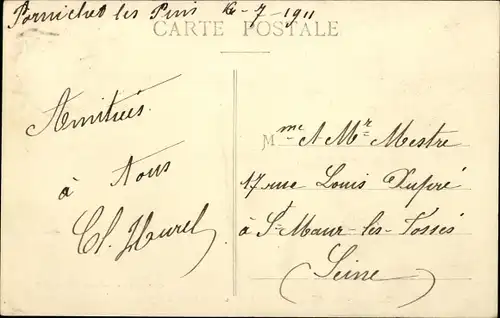 Pornichet les Pins 16-7-1911
CARTE POSTALE
Amitiés
à Vous
Cl. Hurel
Mme & Mr Mestre
17 rue Louis Dupré
à St Maur-les-Fossés
(Seine)